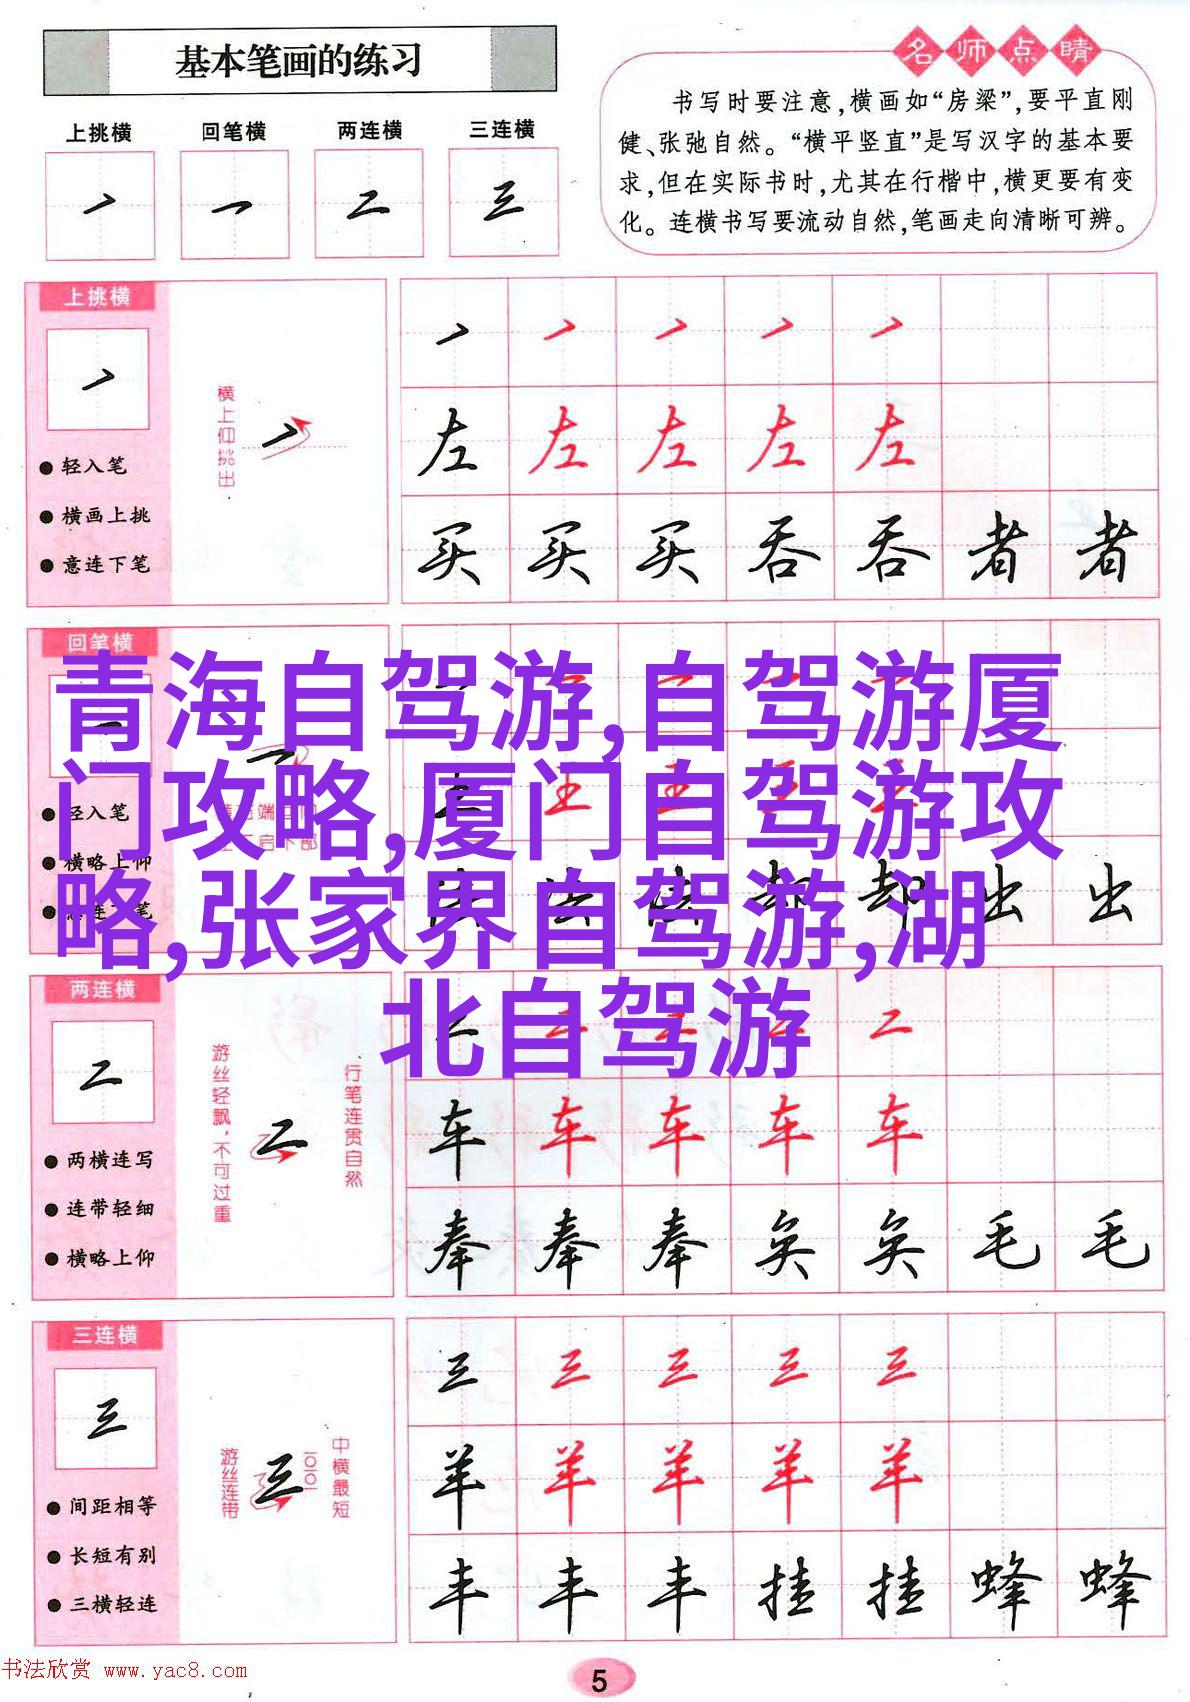 基本笔画的练习
上挑横 回笔横 两连横 三连横
丶 一 二 三
名师点睛
书写时要注意,横画如“房梁”,要平直刚
健、张弛自然。“横平竖直”是写汉字的基本要
求,但在实际书时,尤其在行楷中,横更要有变
化。连横书写要流动自然,笔画走向清晰可辨。
上挑横
轻入笔
横画上挑
意连下笔
横上仰挑出
左 左 左 左 左
买 买 买 吞 吞 者 者
回笔横
轻入笔
横略上仰
青海自驾游,自驾游厦
门攻略,厦门自驾游攻
略,张家界自驾游,湖
北自驾游
却 却 出 出
两连横
二
两横连写
连带轻细
横略上仰
游丝轻飘,不可过重
行笔连贯自然
二
车 车 车 车 车
奉 奉 奉 奂 奂 毛 毛
三连横
三
间距相等
长短有别
三横轻连
游丝连带
三
中横最短
三 三 三 三 三
羊 羊 羊 羊 羊
丰 丰 丰 挂 挂 蜂 蜂
书法欣赏 www.yac8.com
5